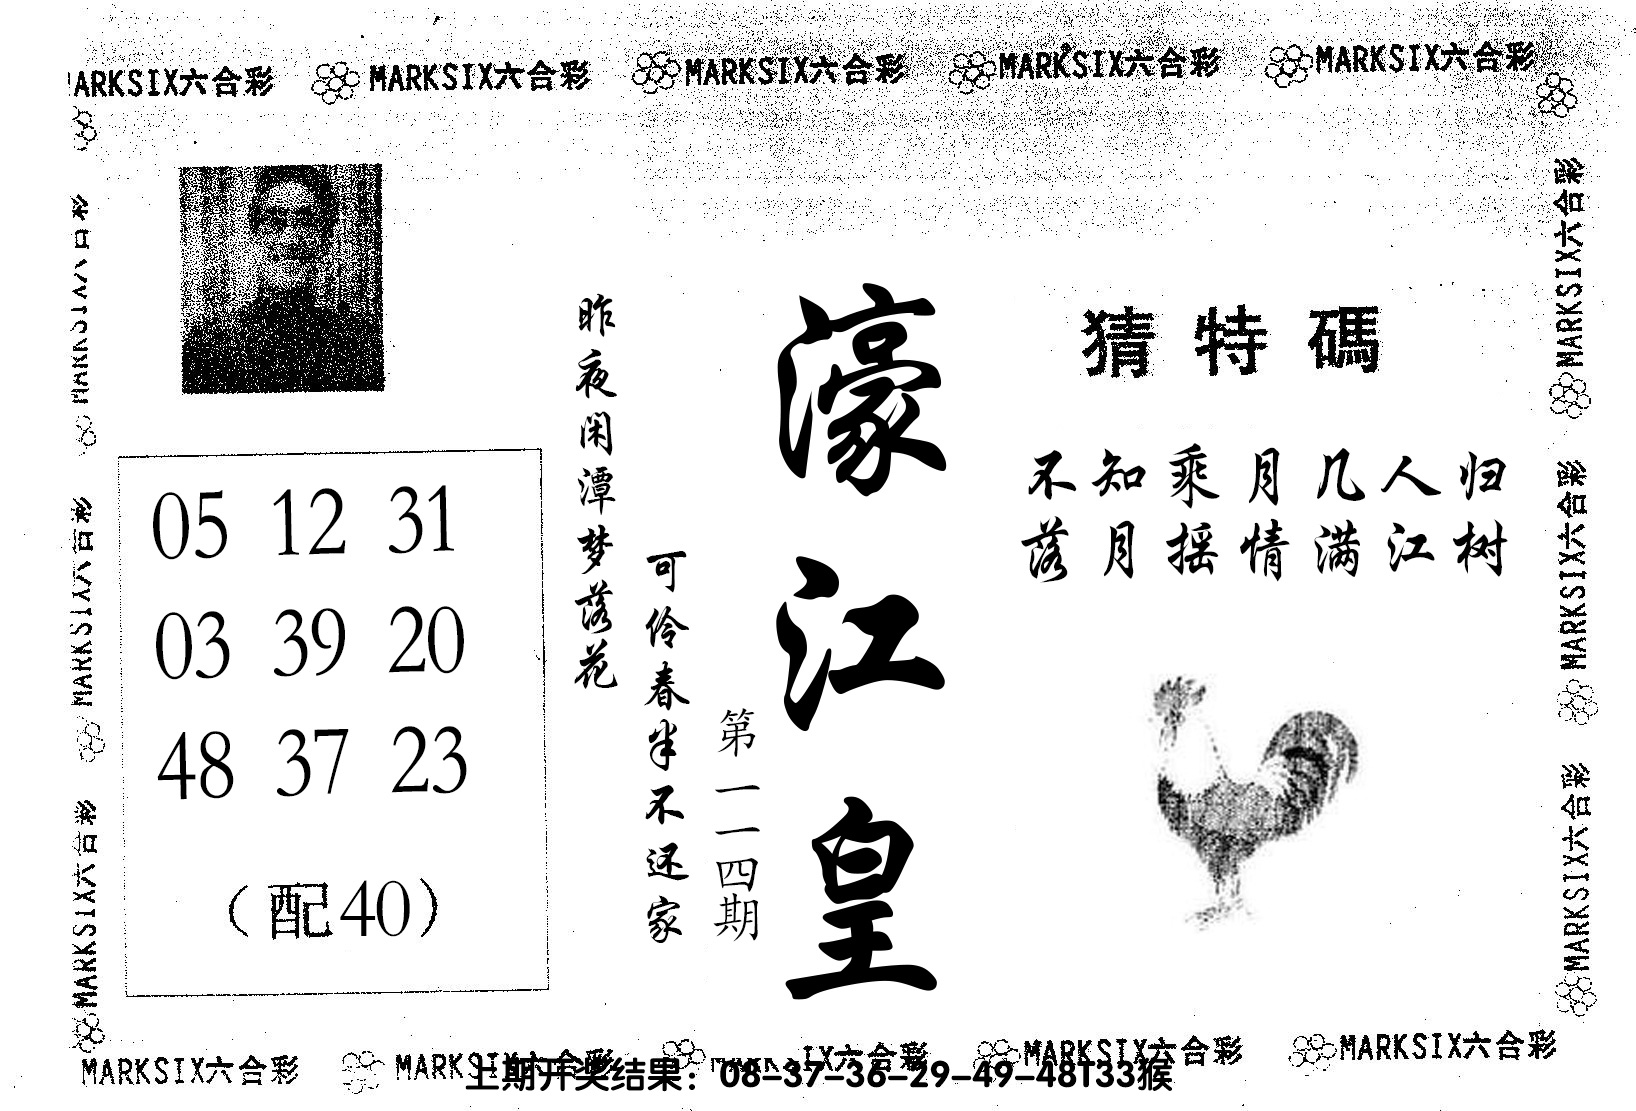 MARKSIX六合彩 MARKSIX六合彩 MARKSIX六合彩 MARKSIX六合彩
猜特碼
不知乘月几人归
落月摇情满江树
濠江皇
第一一四期
昨夜闲潭梦落花
可伶春半不还家
05 12 31
03 39 20
48 37 23
（配40）
MARKSIX六合彩
MARKSIX六合彩
MARKSIX六合彩
MARKSIX六合彩
MARKSIX六合彩
MARKSIX六合彩 MARKSIX六合彩 MARKSIX六合彩
上期开奖结果：08-37-36-29-49-48T33猴